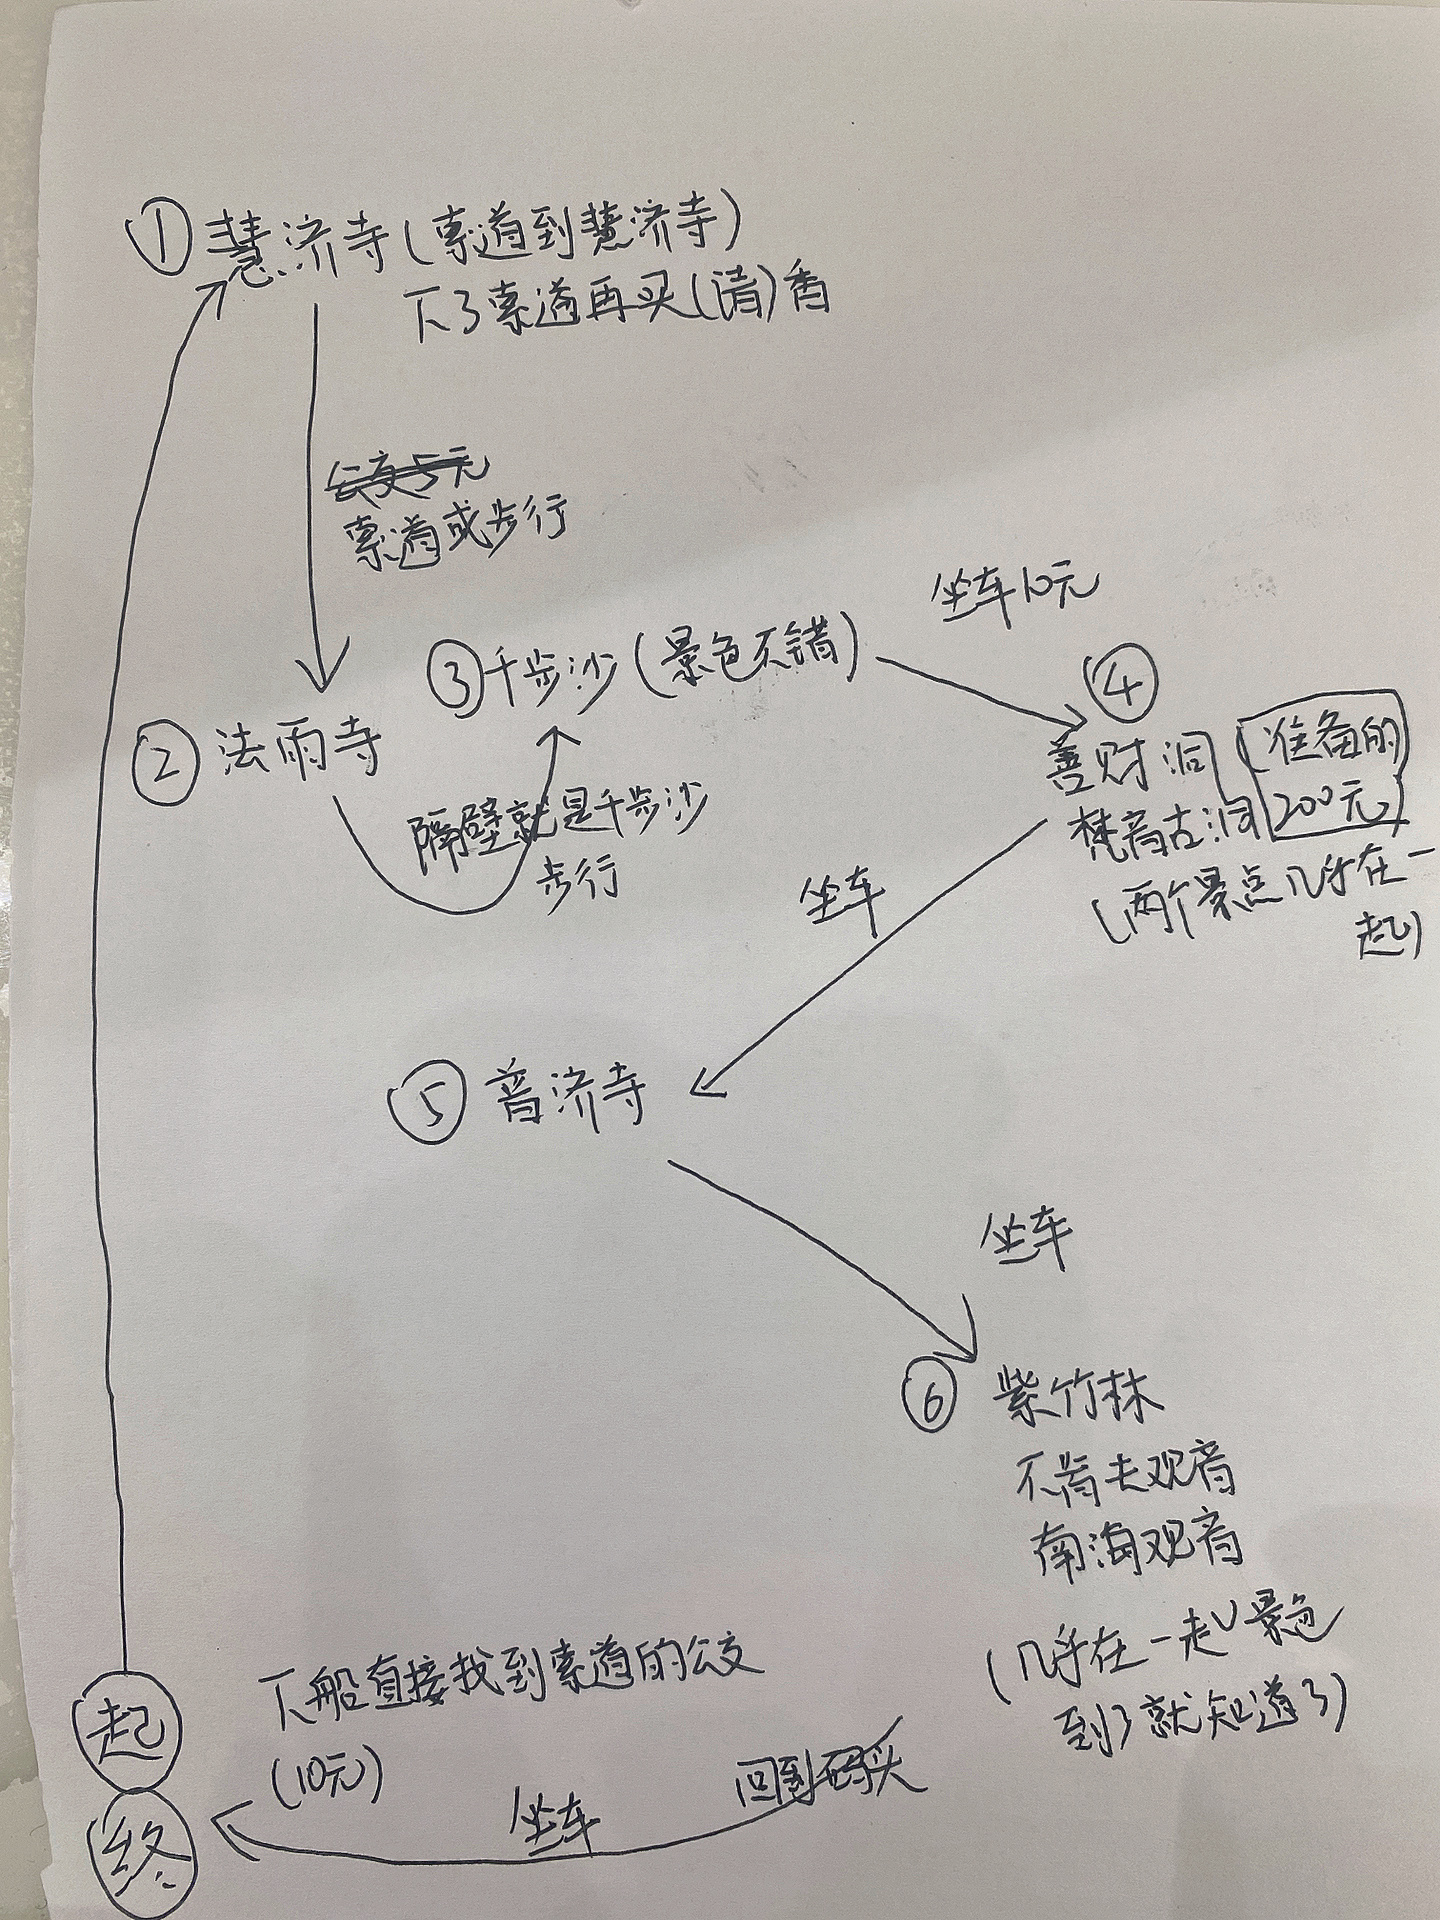 ① 慧济寺(索道到慧济寺)
下了索道再买(请)香
公交5元
索道或步行
坐车10元
③千步沙(景色不错)
④
② 法雨寺
善财洞
梵音古洞
(准备的
200元)
(两个景点几乎在一
起)
隔壁就是千步沙
步行
坐车
⑤ 普济寺
坐车
⑥ 紫竹林
不肯去观音
南海观音
(几乎在一起 景色
到了就知道了)
起
下船直接找到索道的公交
(10元)
回到码头
坐车
终